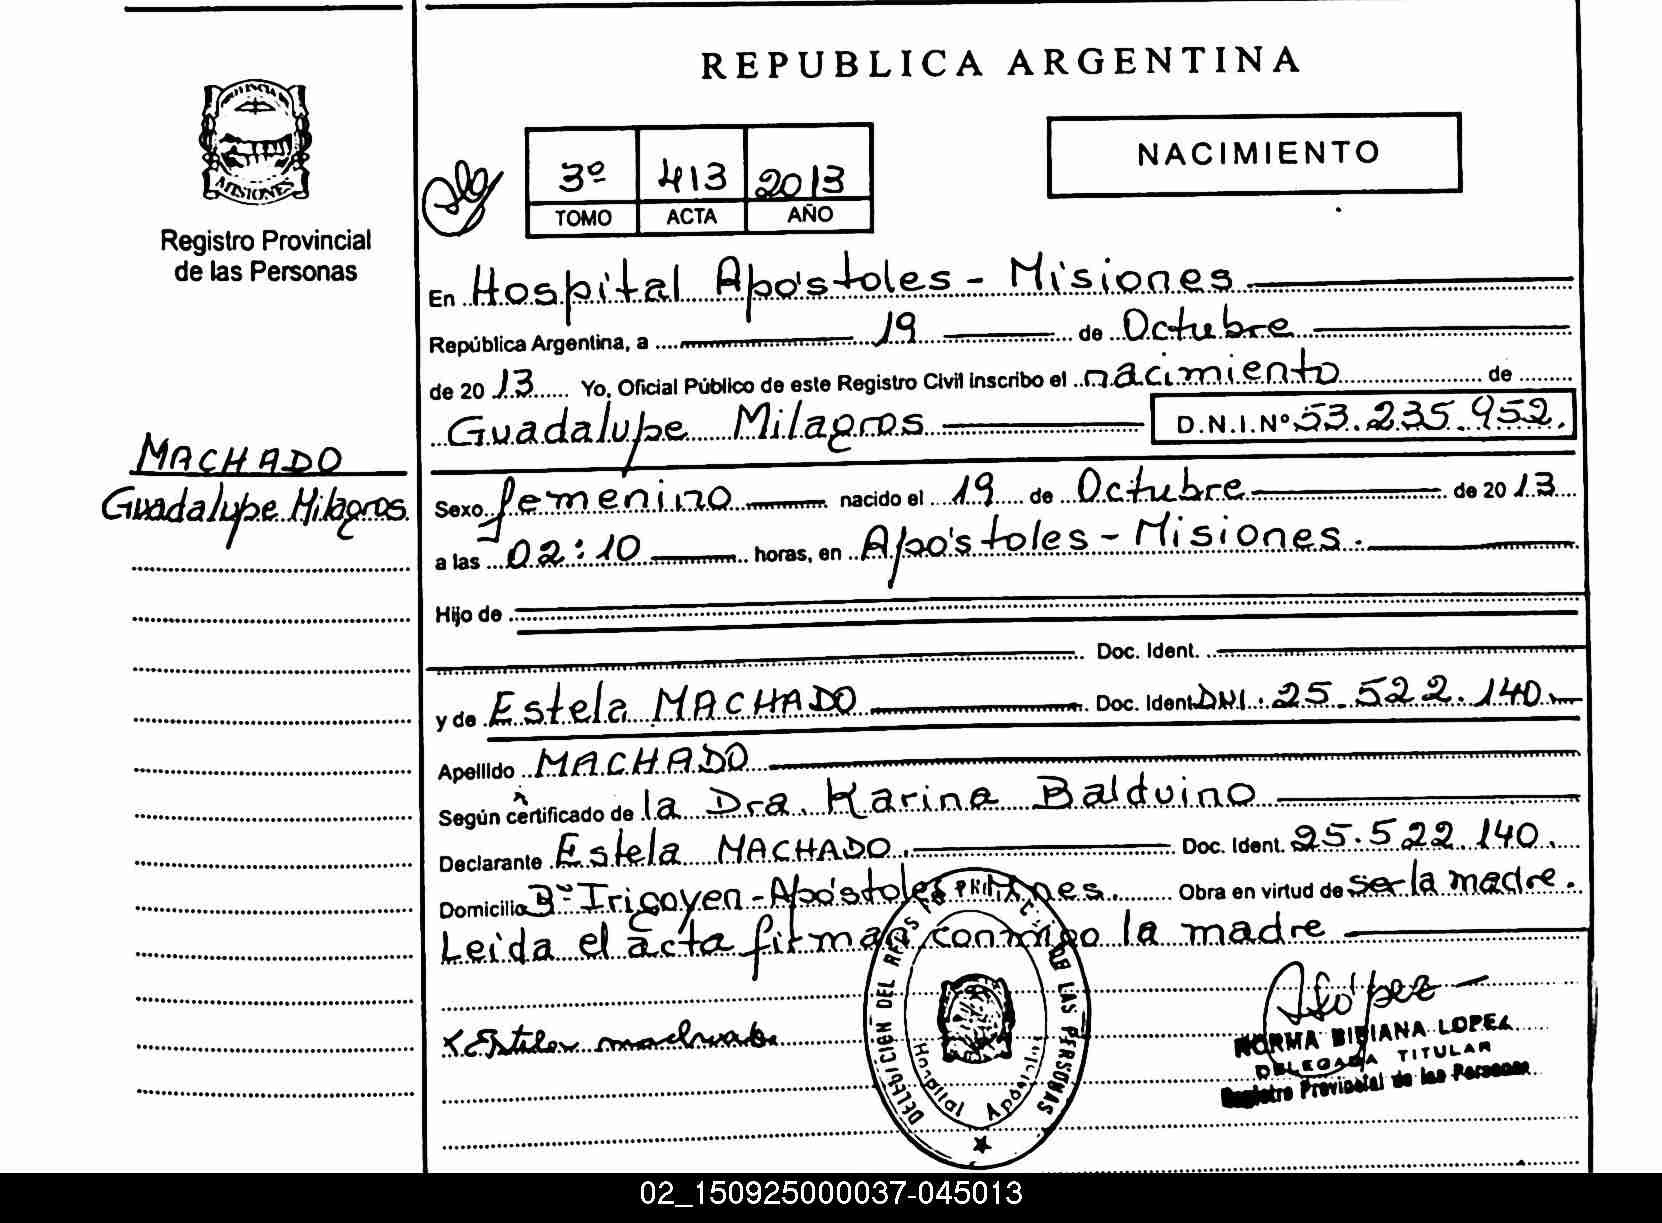 REPUBLICA ARGENTINA
PROVINCIA DE
MISIONES
Registro Provincial
de las Personas
3º 413 2013
TOMO ACTA AÑO
NACIMIENTO
En Hospital Apóstoles - Misiones
República Argentina, a 19 de Octubre
de 2013 Yo, Oficial Público de este Registro Civil inscribo el nacimiento de
Guadalupe Milagros D.N.I.Nº 53.235.952.
MACHADO
Guadalupe Milagros
Sexo femenino nacido el 19 de Octubre de 2013
a las 02:10 horas, en Apóstoles - Misiones.
Hijo de
Doc. Ident.
y de Estela MACHADO Doc. Ident. DNI. 25.522.140
Apellido MACHADO
Según certificado de la Dra. Karina Balduino
Declarante Estela MACHADO. Doc. Ident. 25.522.140.
Domicilio Bº Irigoyen - Apóstoles Obra en virtud de ser la madre.
Leida el acta firman conmigo la madre
x Estela machado
NORMA BIBIANA LOPEZ
DELEGADA TITULAR
Registro Provincial de las Personas
DE LAS PERSONAS
Hospital Apóstoles
02_150925000037-045013